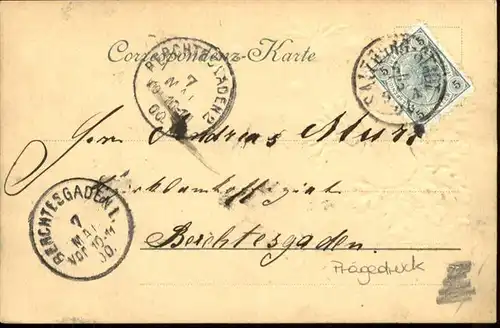 Correspondenz-Karte
BERCHTESGADEN 2
7
MAI
00
5 5
SALZBURG
Herrn Andreas
Berchtesgaden.
BERCHTESGADEN 1.
7
MAI
VOR 10-11
00.
Prägedruck